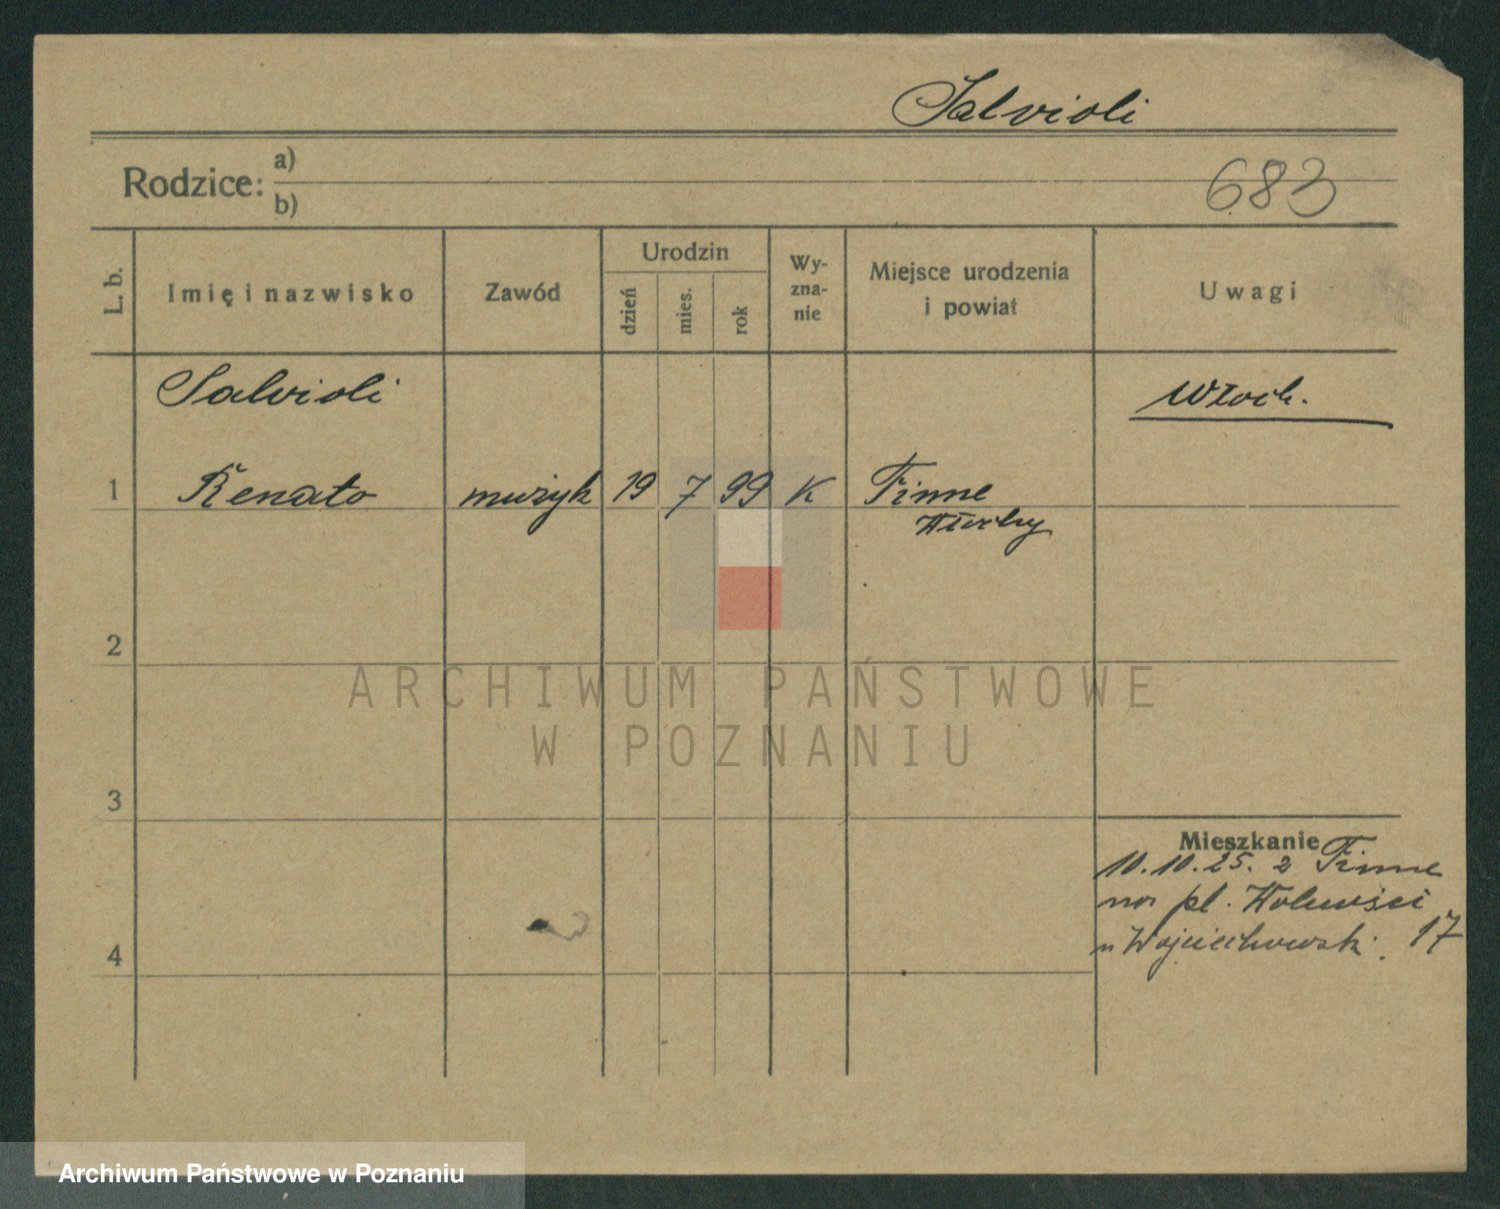 Salvioli
Rodzice: a)
b)
683
L. b.
Imię i nazwisko
Zawód
Urodzin
dzień
mies.
rok
Wy-
zna-
nie
Miejsce urodzenia
i powiat
Uwagi
Salvioli
Włoch.
1 Renato muzyk 19 7 99 K Fiume
Włochy
2
3
4
Mieszkanie
10.10.25. z Fiume
na pl. Wolności
u Wojciechowski. 17
ARCHIWUM PAŃSTWOWE
W POZNANIU
Archiwum Państwowe w Poznaniu